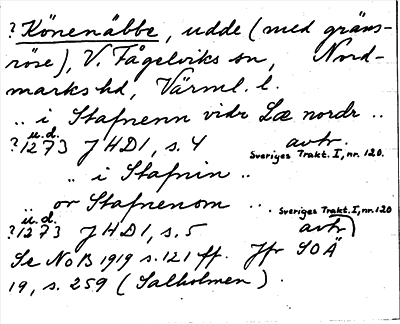 ? Könenäbbe, udde (med gräns-
röse), V. Fågelviks sn, Nord-
marks hd, Värml. l.
.. i Stafnenn vidr Læ nordr ..
u.d.
?1273 JHD1, s. 4 avtr.
Sveriges Trakt. I, nr. 120.
" i Stafnin ..
.. or Stafnenom ..
u.d. Sveriges Trakt. I, nr. 120
?1273 JHD1, s. 5 avtr)
Se NoB 1919 s. 121 ff. Jfr SOÄ
19, s. 259 (Salholmen).